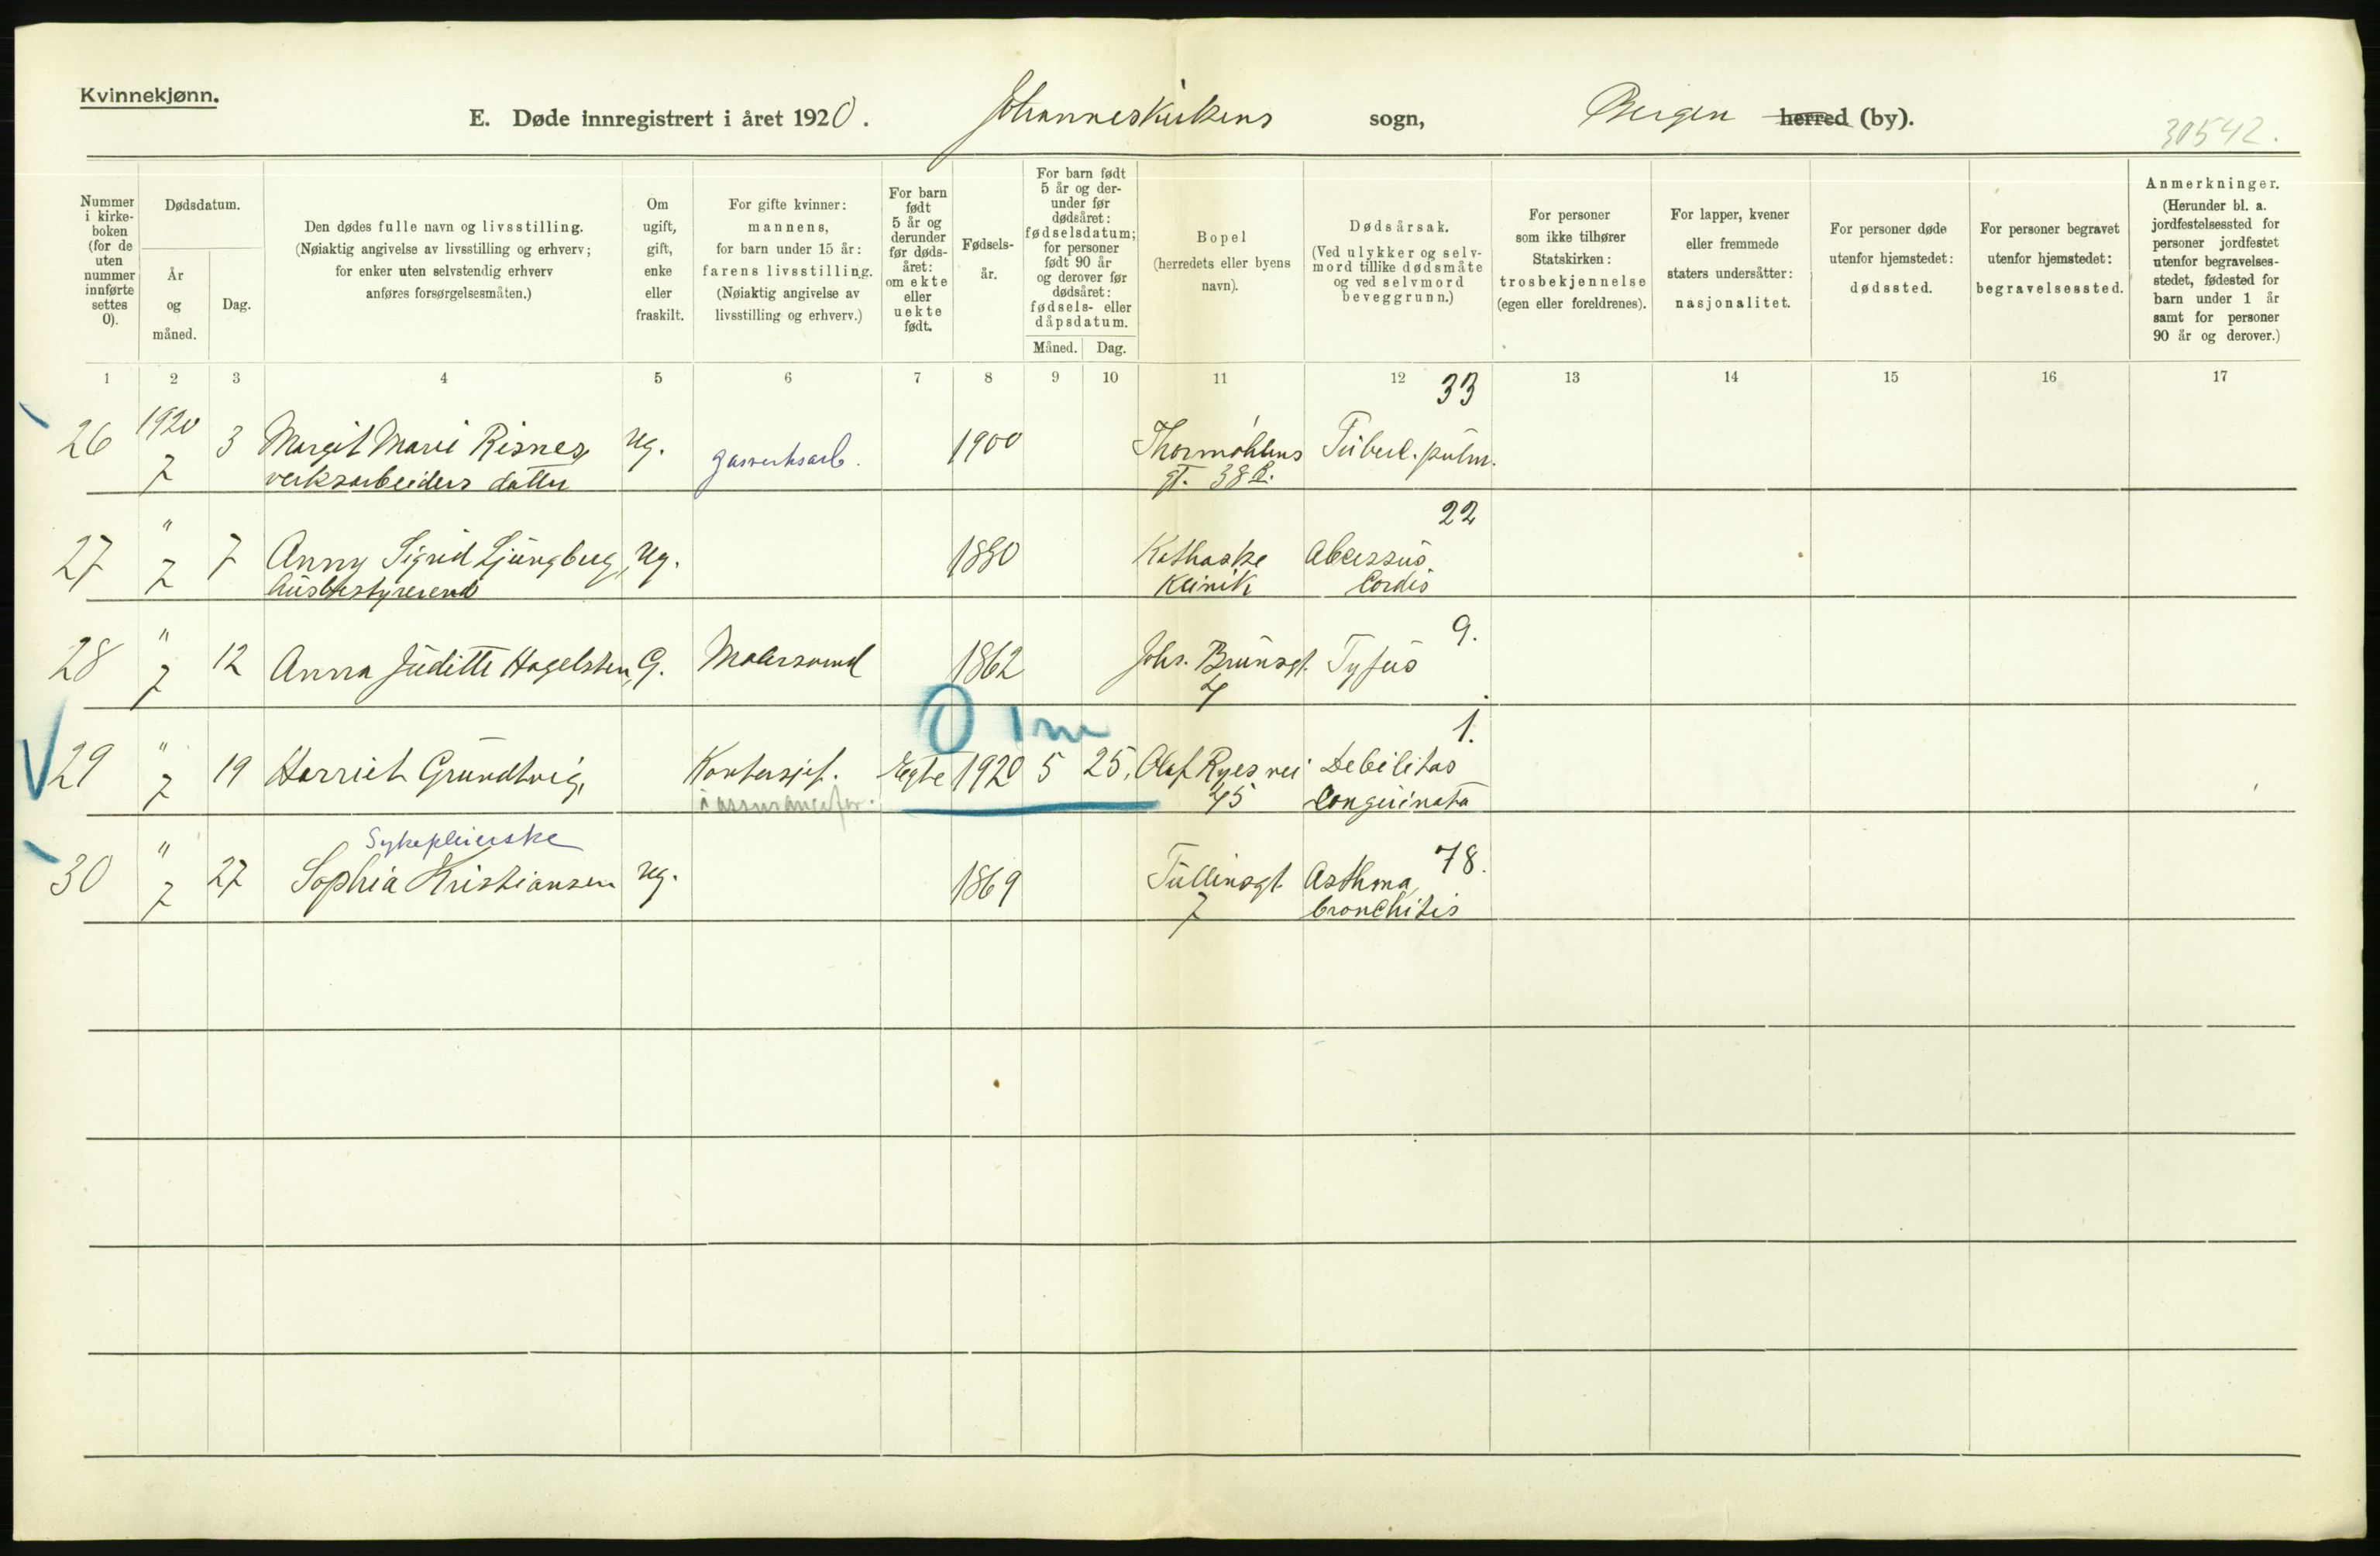 Kvinnekjønn.
E. Døde innregistrert i året 1920. Johanneskirkens sogn, Bergen herred (by).
30542.
Nummer i kirkeboken (for de uten nummer innførte settes 0).
Dødsdatum.
År og måned.
Dag.
Den dødes fulle navn og livsstilling.
(Nøiaktig angivelse av livsstilling og erhverv;
for enker uten selvstendig erhverv
anføres forsørgelsesmåten.)
Om ugift, gift, enke eller fraskilt.
For gifte kvinner:
mannens,
for barn under 15 år:
farens livsstilling.
(Nøiaktig angivelse av
livsstilling og erhverv.)
For barn født 5 år og derunder før dødsåret: om ekte eller uekte født.
Fødselsår.
For barn født 5 år og derunder før dødsåret: fødselsdatum; for personer født 90 år og derover før dødsåret: fødsels- eller dåpsdatum.
Måned. Dag.
Bopel
(herredets eller byens
navn).
Dødsårsak.
(Ved ulykker og selvmord tillike dødsmåte og ved selvmord beveggrunn.)
For personer
som ikke tilhører
Statskirken:
trosbekjennelse
(egen eller foreldrenes).
For lapper, kvener
eller fremmede
staters undersåtter:
nasjonalitet.
For personer døde
utenfor hjemstedet:
dødssted.
For personer begravet
utenfor hjemstedet:
begravelsessted.
Anmerkninger.
(Herunder bl. a.
jordfestelsessted for
personer jordfestet
utenfor begravelses-
stedet, fødested for
barn under 1 år
samt for personer
90 år og derover.)
1 2 3 4 5 6 7 8 9 10 11 12 13 14 15 16 17
33
26 1920 7 3 Margit Marie Risnes, ug. gasverksarb. 1900 Thormøhlens Tüberl. pülm.
verksarbeiders datter gt. 38 B.
22
27 " 7 7 Anny Sigrid Ljüngberg, ug. 1880 Kathaske Abcessüs
hüsbestyrerende Klinik Cordis
9.
28 " 7 12 Anna Jüditte Hagelsten, G. Malersvend 1862 Johs. Brünsgt. Tyfüs
4
0 1 m
1.
29 " 7 19 Harriet Gründtvig, Kontorsjef. Egte 1920 5 25. Olaf Ryes vei Debilitas
i assuransefor. 45 Conguinata
Sykepleierske
78.
30 " 7 27 Sophia Kristiansen ug. 1869 Tüllinsgt. Asthma
7 bronchitis